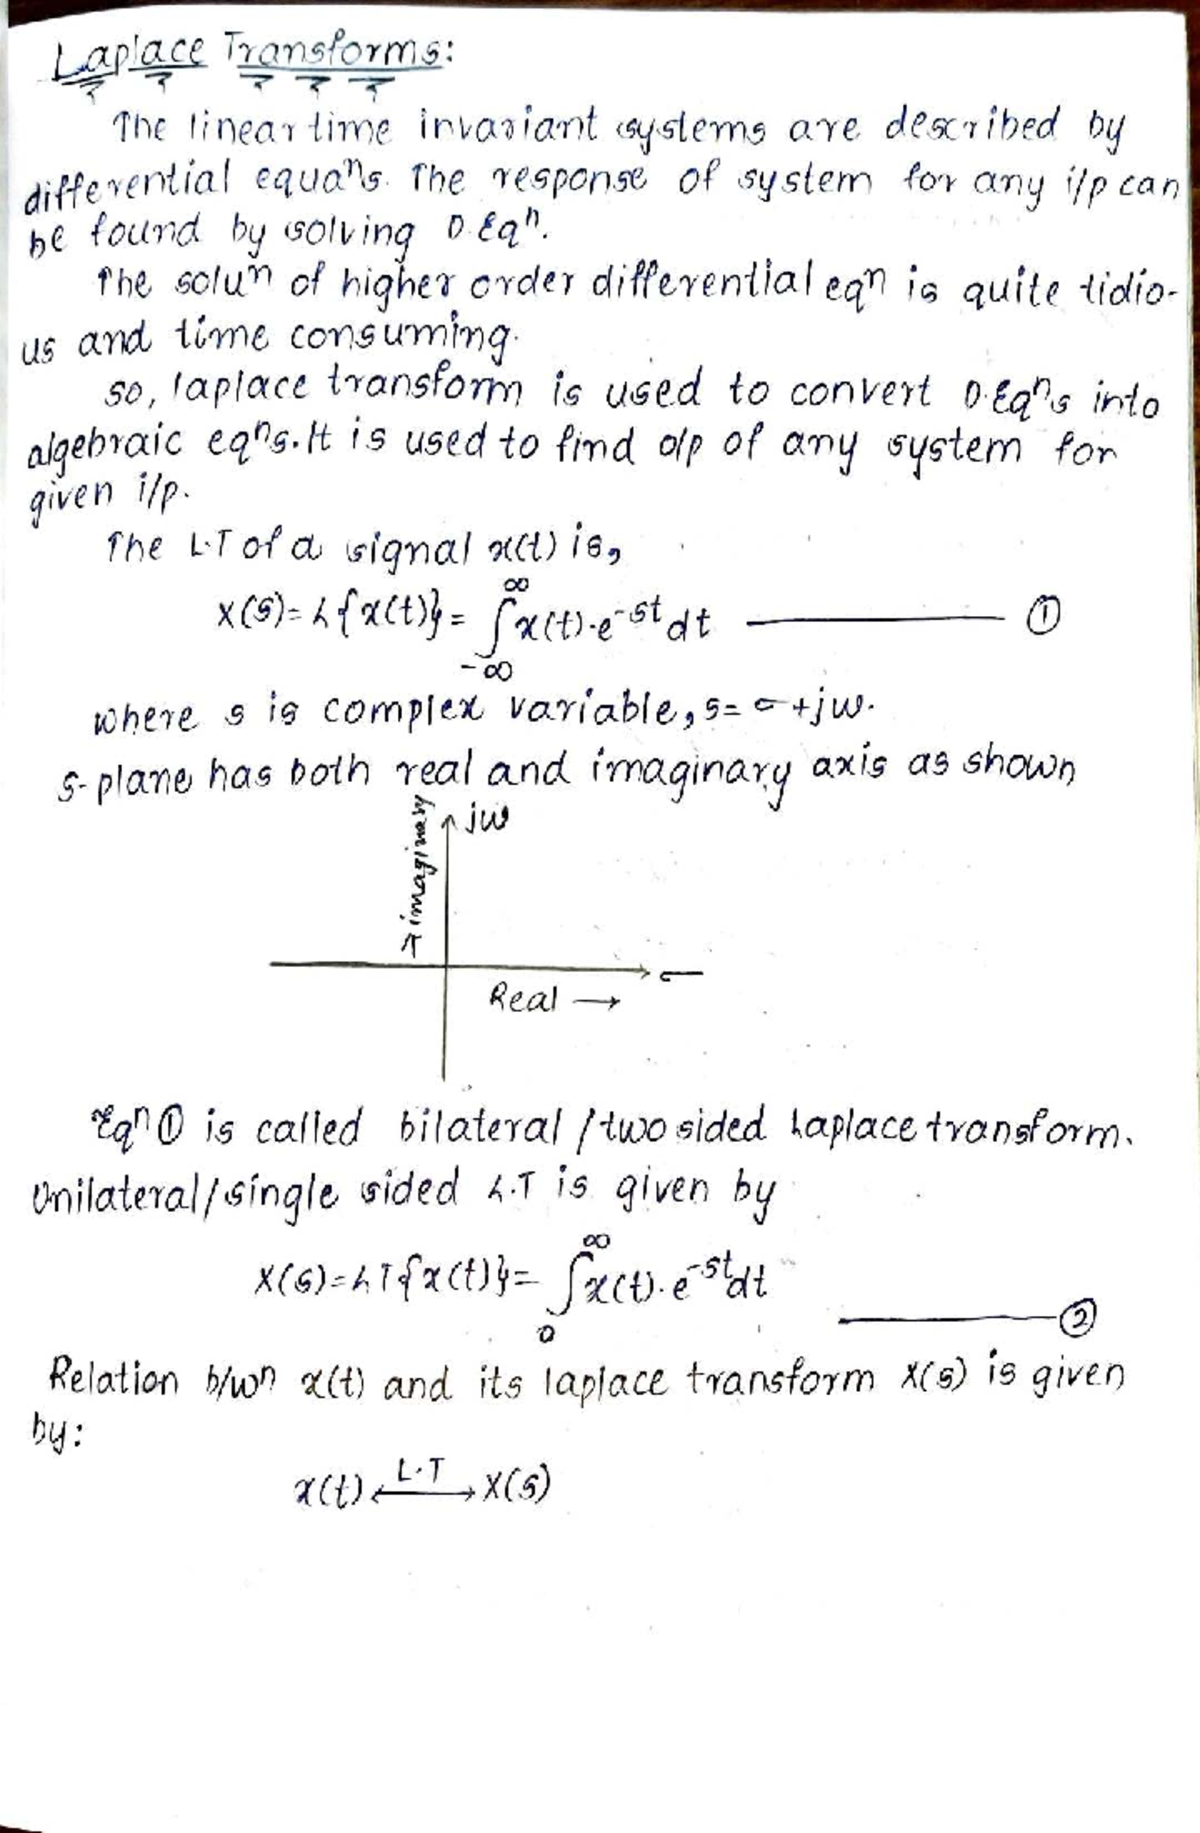 Laplace Transforms:
The linear time invariant systems are described by
differential equaⁿs. The response of system for any i/p can
be found by solving D.Eqⁿ.
The soluⁿ of higher order differential eqⁿ is quite tidio-
us and time consuming.
so, laplace transform is used to convert D.Eqⁿs into
algebraic eqⁿs. It is used to find o/p of any system for
given i/p.
The L.T of a signal x(t) is,
X(s) = L{x(t)} = ∫_{-∞}^{∞} x(t)·e^{-st} dt ——— ①
where s is complex variable, s = σ + jω.
s-plane has both real and imaginary axis as shown
jω
→ imaginary
σ
Real →
Eqⁿ ① is called bilateral / two sided Laplace transform.
Unilateral / single sided L.T is given by
X(s) = LT{x(t)} = ∫_{0}^{∞} x(t)·e^{-st} dt
——— ②
Relation b/wn x(t) and its laplace transform X(s) is given
by:
x(t) ←L.T→ X(s)